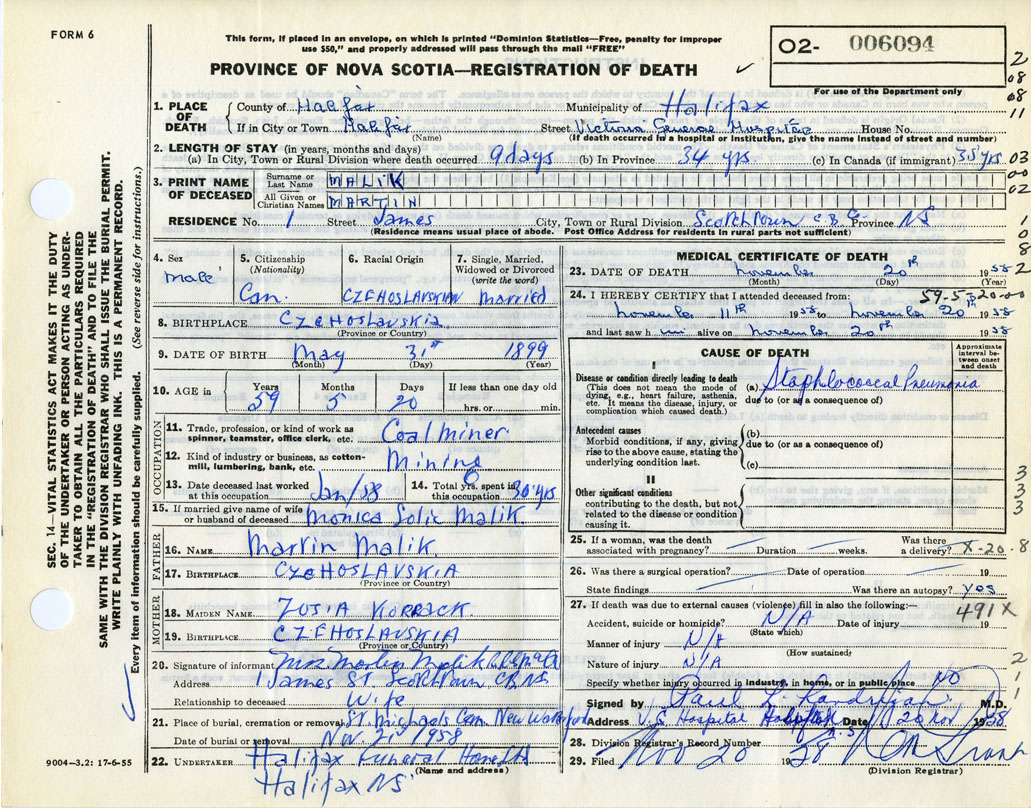 FORM 6
This form, if placed in an envelope, on which is printed "Dominion Statistics—Free, penalty for improper
use $50," and properly addressed will pass through the mail "FREE"
O2- 006094
PROVINCE OF NOVA SCOTIA—REGISTRATION OF DEATH
For use of the Department only
2
08
08
11
03
00
02
0
8
2
1. PLACE OF DEATH
County of Halifax Municipality of Halifax
If in City or Town Halifax Street Victoria General Hospital House No.
(Name) (If death occurred in a hospital or institution, give the name instead of street and number)
2. LENGTH OF STAY (in years, months and days)
(a) In City, Town or Rural Division where death occurred 9 days (b) In Province 34 yrs (c) In Canada (if immigrant) 35 yrs
3. PRINT NAME OF DECEASED
Surname or Last Name MALIK
All Given or Christian Names MARTIN
RESIDENCE No. 1 Street James City, Town or Rural Division Scotchtown C.B. Co. Province NS
(Residence means usual place of abode. Post Office Address for residents in rural parts not sufficient)
4. Sex male
5. Citizenship (Nationality) Can.
6. Racial Origin CZEHOSLAVSKIAN
7. Single, Married, Widowed or Divorced (write the word) Married
8. BIRTHPLACE CZEHOSLAVSKIA
(Province or Country)
9. DATE OF BIRTH May 31st 1899
(Month) (Day) (Year)
10. AGE in Years 59 Months 5 Days 20 If less than one day old hrs. or min.
OCCUPATION
11. Trade, profession, or kind of work as spinner, teamster, office clerk, etc. Coal miner
12. Kind of industry or business, as cotton-mill, lumbering, bank, etc. Mining
13. Date deceased last worked at this occupation Jan/58 14. Total yrs. spent in this occupation 30 yrs.
15. If married give name of wife or husband of deceased Monica Solic Malik.
FATHER
16. NAME Martin Malik.
17. BIRTHPLACE CZEHOSLAVSKIA
(Province or Country)
MOTHER
18. MAIDEN NAME ZUSIA KORRACK
19. BIRTHPLACE CZEHOSLAVSKIA
(Province or Country)
20. Signature of informant Mrs Martin Malik
Address 1 James St. Scotchtown CB. NS
Relationship to deceased Wife
21. Place of burial, cremation or removal St. Michaels Cem New Waterford
Date of burial or removal Nov. 21st 1958
22. UNDERTAKER Halifax Funeral Home Ltd
(Name and address)
Halifax NS
9004—3.2: 17-6-55
MEDICAL CERTIFICATE OF DEATH
23. DATE OF DEATH November 20th 1958
(Month) (Day) (Year)
59-5-20-00
24. I HEREBY CERTIFY that I attended deceased from:
November 11th 1958 to November 20th 1958
and last saw him alive on November 20th 1958
CAUSE OF DEATH
Approximate interval between onset and death
I
Disease or condition directly leading to death
(This does not mean the mode of dying, e.g., heart failure, asthenia, etc. It means the disease, injury, or complication which caused death.)
(a) Staphlococcal Pneumonia
due to (or as a consequence of)
Antecedent causes
Morbid conditions, if any, giving rise to the above cause, stating the underlying condition last.
(b)
due to (or as a consequence of)
(c)
II
Other significant conditions
contributing to the death, but not related to the disease or condition causing it.
3
3
3
25. If a woman, was the death associated with pregnancy? Duration weeks. Was there a delivery? X-20-8
26. Was there a surgical operation? Date of operation 19
State findings Was there an autopsy? yes
27. If death was due to external causes (violence) fill in also the following:—
491X
Accident, suicide or homicide? N/A Date of injury 19
(State which)
Manner of injury N/A
(How sustained)
Nature of injury N/A
Specify whether injury occurred in industry, in home, or in public place NO
2
1
1
Signed by Paul M.D.
Address V.G. Hospital Halifax N.S Date 20 Nov 1958
28. Division Registrar's Record Number
29. Filed Nov 20 1958
(Division Registrar)
SEC. 14—VITAL STATISTICS ACT MAKES IT THE DUTY
OF THE UNDERTAKER OR PERSON ACTING AS UNDER-
TAKER TO OBTAIN ALL THE PARTICULARS REQUIRED
IN THE "REGISTRATION OF DEATH" AND TO FILE THE
SAME WITH THE DIVISION REGISTRAR WHO SHALL ISSUE THE BURIAL PERMIT.
WRITE PLAINLY WITH UNFADING INK. THIS IS A PERMANENT RECORD.
Every item of information should be carefully supplied. (See reverse side for instructions.)